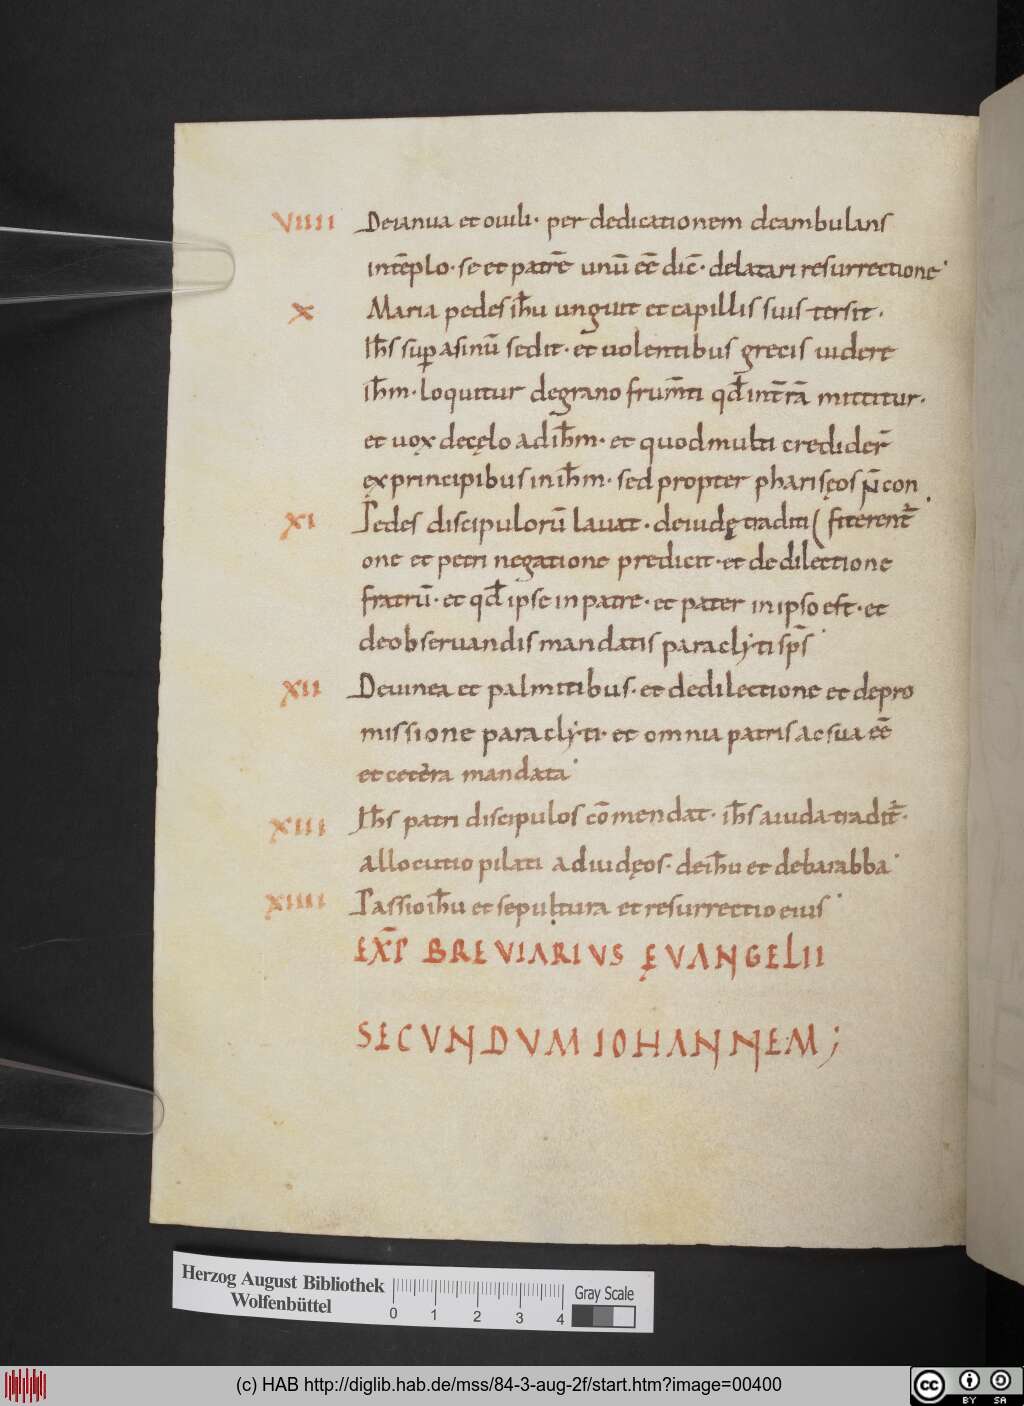 VIIII Deianua et ouili· per dedicationem deambulans
intēplo· se et patrē unū eē dic̄· delatari resurrectione·
X Maria pedes ih̄u unguit et capillis suis tersit·
Ih̄s sup asinū sedit· et uolentibus grecis uidere
ih̄m· loquitur degrano frum̄ti qd̄ int̄rā mittitur·
et uox decęlo adih̄m· et quod multi credider̄
ęx principibus inih̄m· sed propter pharisęos n̄ con
XI Pedes discipulorū lauat· deiudę traditi ( fiterent̄·
one et petri negatione predicit· et de dilectione
fratrū· et qd̄ ipse inpatre· et pater inipso est· et
deobseruandis mandatis paraclẏti sp̄s·
XII Deuinea et palmitibus· et dedilectione et depro
missione paraclẏti· et omnia patris ac sua eē
et cetera mandata·
XIII Ih̄s patri discipulos cōmendat· ih̄s aiuda tradit̄·
allocutio pilati adiudęos· deih̄u et debarabba·
XIIII Passio ih̄u et sepultura et resurrectio eius·
EXP̄ BREVIARIVS ĘVANGELII
SECVNDVM IOHANNEM;
Herzog August Bibliothek
Wolfenbüttel
0 1 2 3 4
Gray Scale
(c) HAB http://diglib.hab.de/mss/84-3-aug-2f/start.htm?image=00400
cc BY SA